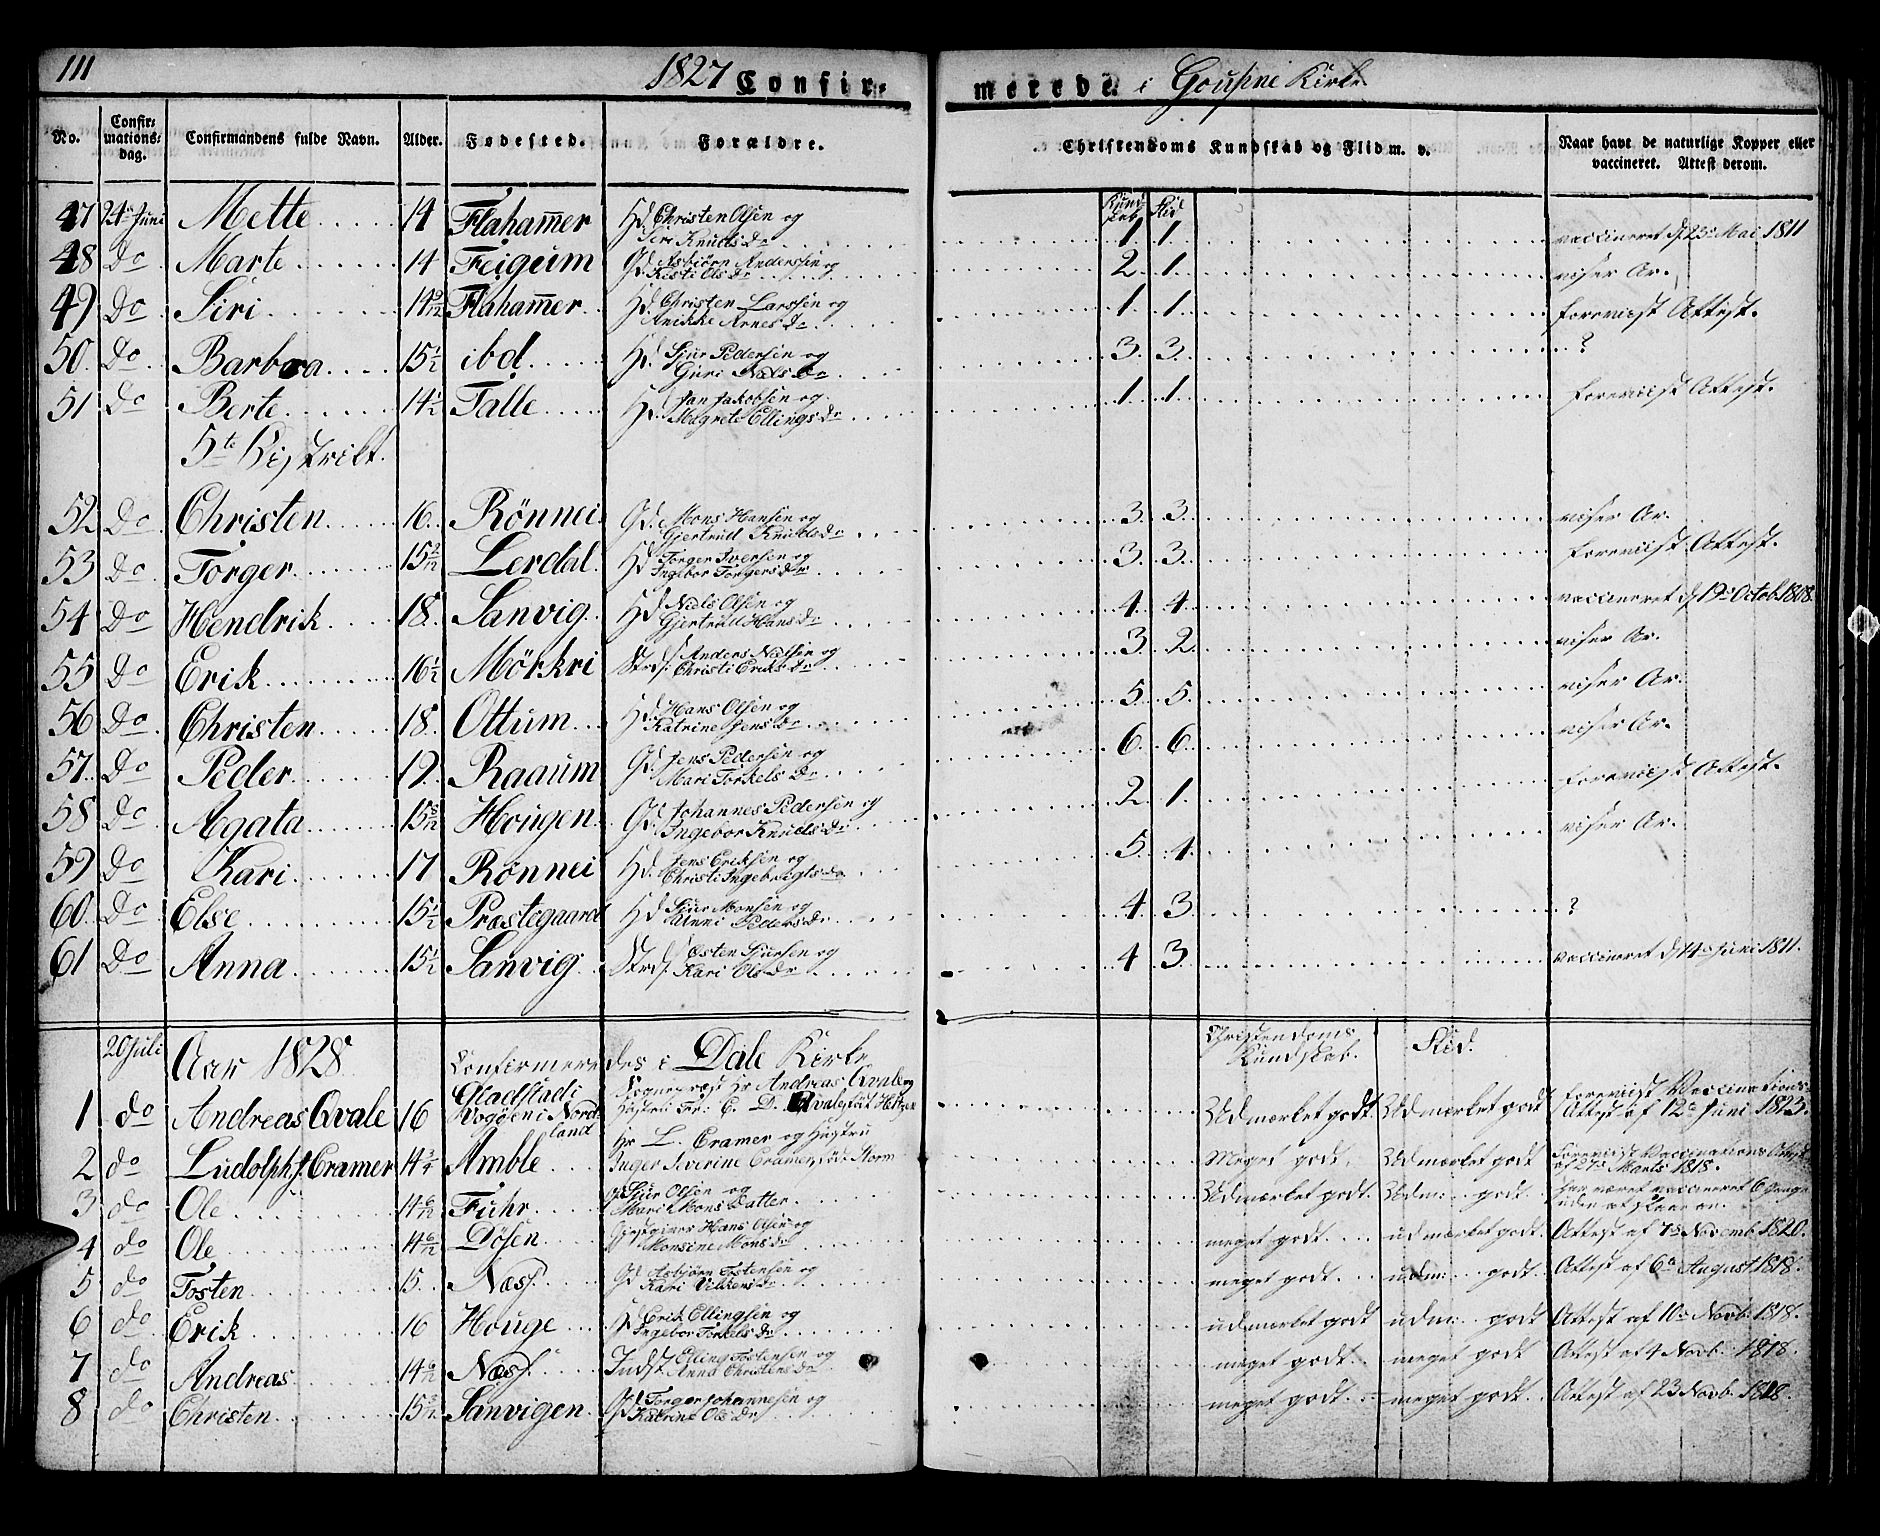 111
1827 Confir-
merede i Gousne Kirke
No.
Confir-
mations-
dag.
Confirmandens fulde Navn.
Alder.
Fødested.
Forældre.
Christendoms Kundskab og Flid m. v.
Naar havt de naturlige Kopper eller
vaccineret. Attest derom.
Kund-
skab Flid
47 24de Juni Mette 14 Flahamer Hd. Christen Olsen og
Siri Knuds Dr 1. 1. vaccineret d. 23de Mai 1811
48 Do Marte 14 Feigum Gd. Asbjørn Anderssen og
Kisti Ols Dr 2. 1. viser Ar.
49 Do Siri 14 9/12 Flahamer Hd. Christen Larssen og
Anikke Arnes Dr 1. 1. foreviist Attest.
50. Do Barbra 15 1/2 ibd. Hd. Sjur Pedersen og
Guri Niels Dr 3. 3. ?
51 Do Berte 14 1/2 Talle Hd. Jan Jakobsen og
Magrete Ellings Dr 1. 1. foreviist Attest.
5te Distrikt.
52 Do Christen 16 Rönnei Gd. Mons Hansen og
Gjertrud Knuds Dr 3. 3. viser Ar.
53 Do Torger 15 9/12 Lerdal Hd Torger Iversen og
Ingebor Torgers Dr 3. 3. foreviist Attest.
54 Do Hendrik 18 Sanvig Hd Niels Olsen og
Gjertrud Hans Dr 4. 4. vaccineret d. 19de Octob. 1808.
55 Do Erik 16 1/2 Mörkri Strds. Anders Nielsen og
Christi Eriks Dr 3. 2. viser Ar.
56 Do Christen 18 Ottum Hd. Hans Olsen og
Katrine Jens Dr 5. 5. viser Ar.
57 Do Peder 19 Raaum Gd. Jens Pedersen og
Mari Torkels Dr 6. 6. viser Ar.
58 Do Agata 15 5/12 Hougen Gd. Johannes Pedersen og
Ingebor Knuds Dr 2. 1. foreviist Attest.
59 Do Kari 17 Rönnei Hd. Jens Eriksen og
Christi Ingebrigts Dr 5. 4. viser Ar.
60 Do Else 15 1/2 Præstegaard Hd Sjur Monsen og
Anni Peders Dr 4. 3. ?
61 Do Anna 15 1/2 Sanvig Strds. Østen Sjursen og
Kari Ols Dr 4 3 vaccineret d. 14de Juni 1811.
20 Juli Aar 1828 Confirmerede i Dale Kirke
Christendoms
Kundskab. Flid.
1 do Andreas Qvale 16 Gladstad i
Vogøen i Nord-
land Sognepræst Hr Andreas Qvale og
Hustru Fr: C. D. Qvale Udmærket godt Udmærket godt foreviist Vaccinations-
Attest af 12te Juni 1823.
2 do Ludolph J. Cramer 14 3/4 Amble Hr L. Cramer og Hustru
Inger Severine Cramer, fød Storm Meget godt Udmærket godt Foreviist Vaccinations Attest
af 27de Marts 1818.
3 do Ole 14 6/12 Fuhr Gd Sjur Olsen og
Mari Mons Datter Udmærket godt. Udm: godt. har været vaccineret 6 Gange
uden at slaae an.
4 do Ole 14 6/12 Døsen Gjestgiver Hans Olsen og
Monsine Mons Dr meget godt udmærket godt. Attest af 7de Novemb. 1820.
5 do Tosten 15 Næss Gd Asbjørn Tostensen og
Kari Dr meget godt udm: godt Attest af 6te August 1818.
6 do Erik 16 Houge Hd Erik Ellingsen og
Ingebor Torkels Dr udmærket godt udm: godt Attest af 10de Novb. 1818.
7 do Andreas 14 6/12 Næss Indst. Elling Tostensen og
Anna Christens Dr meget godt. meget godt Attest af 4 Novb. 1818.
8 do Christen 15 3/12 Sanvigen Gd Torger Johannesen og
Katrine Ols Dr meget godt. meget godt. Attest af 23 Novb. 1818.